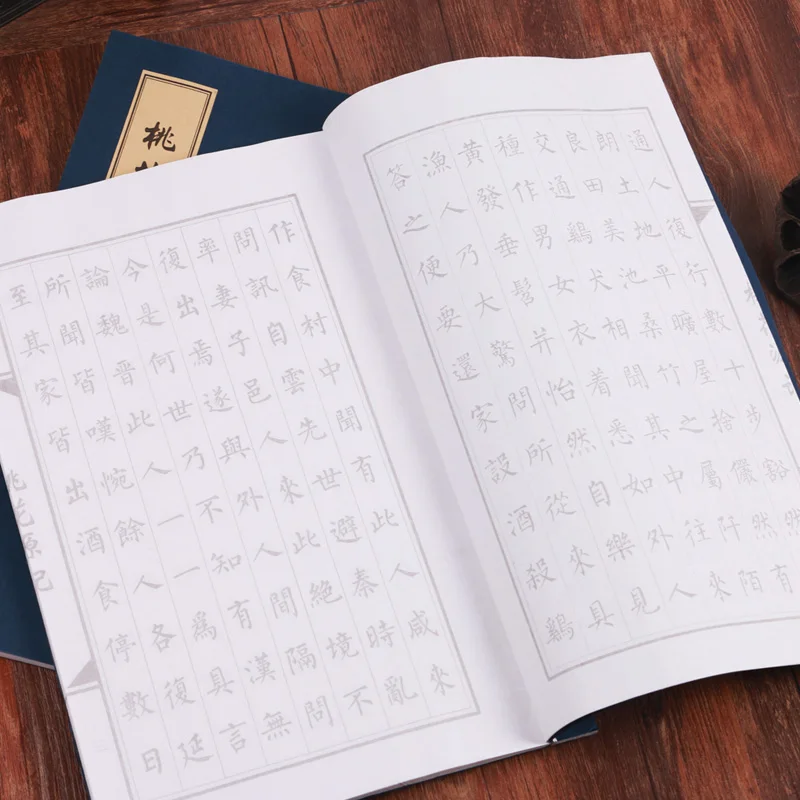 桃
通人復行數十步豁然
朗土地平曠屋捨儼然有
良田美池桑竹之屬阡陌
交通鷄犬相聞其中往來
種作男女衣着悉如外人
黃發垂髫并怡然自樂見
漁人乃大驚問所從來具
答之便要還家設酒殺鷄
作食村中聞有此人咸來
問訊自雲先世避秦時亂
率妻子邑人來此絕境不
復出焉遂與外人間隔問
今是何世乃不知有漢無
論魏晉此人一一爲具言
所聞皆嘆惋餘人各復延
至其家皆出酒食停數日
桃花源記